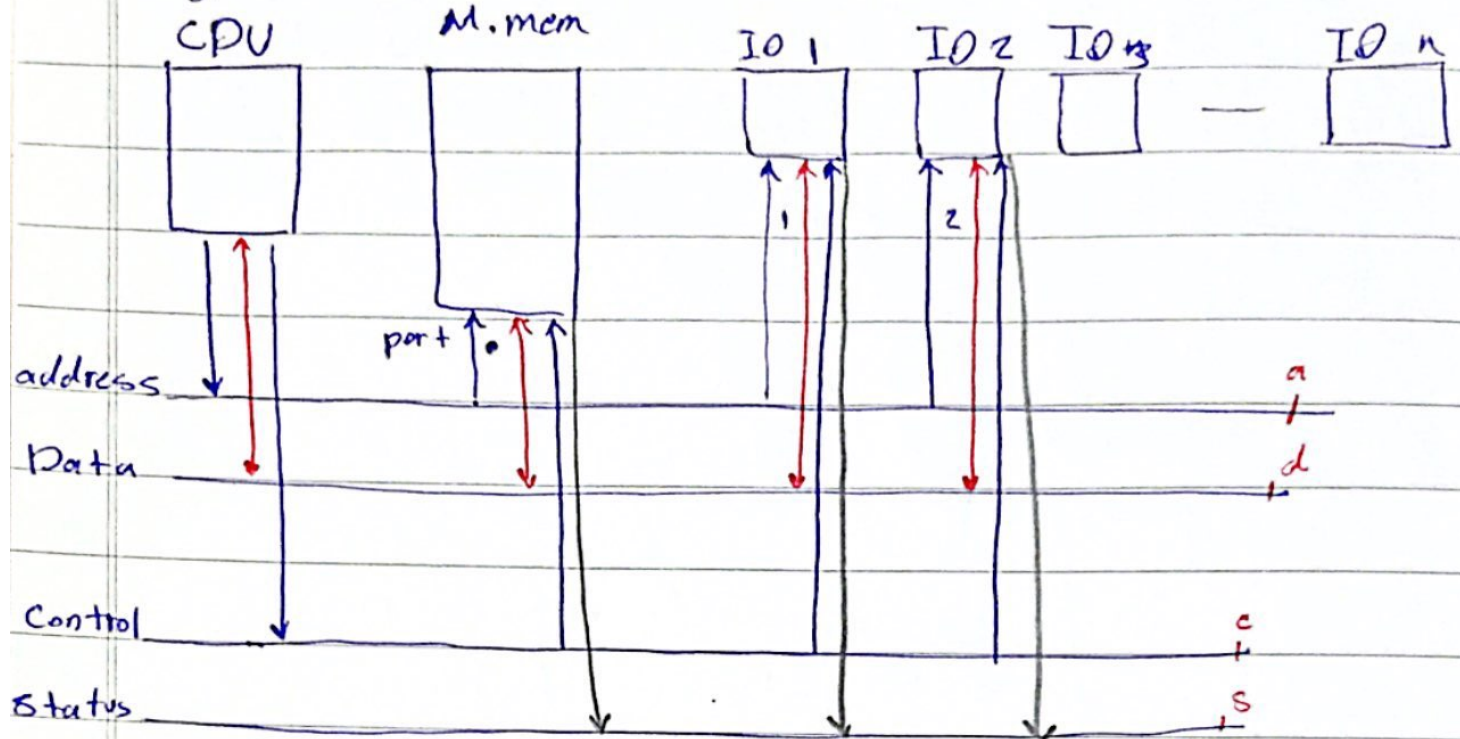 CPU M.mem IO 1 IO 2 IO 3 — IO n
1 2
port
address a
Data d
Control c
Status s